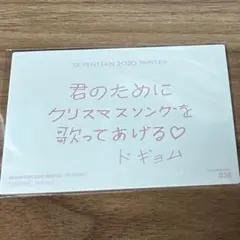 SEVENTEEN 2020 WINTER
君のために
クリスマスソングを
歌ってあげる♡
ドギョム